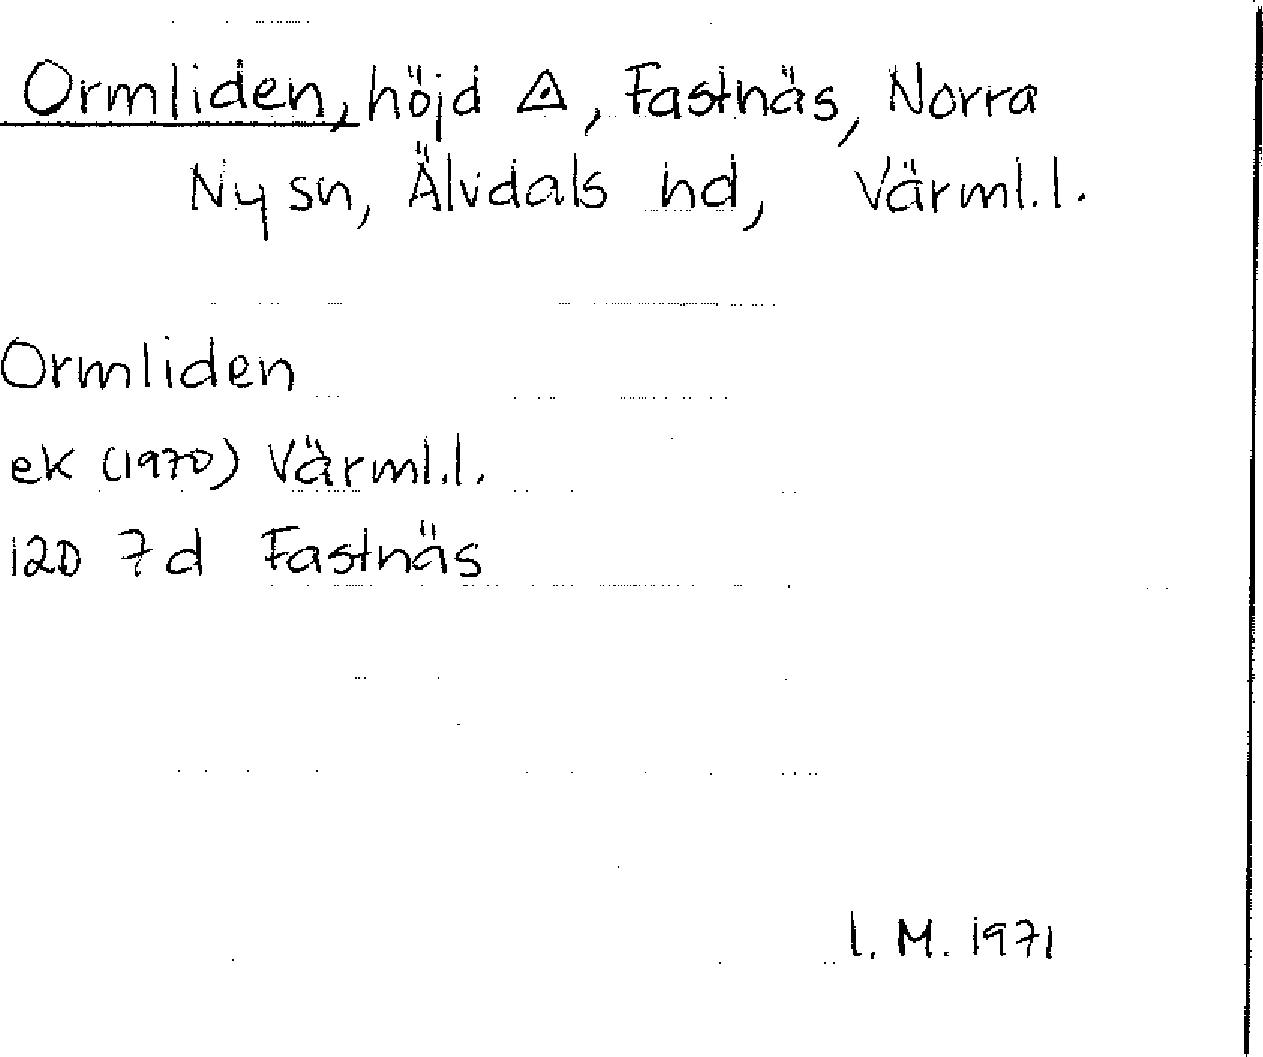 Ormliden, höjd △, Fastnäs, Norra
Ny sn, Älvdals hd, Värml.l.
Ormliden
ek (1970) Värml.l.
12D 7d Fastnäs
I. M. 1971